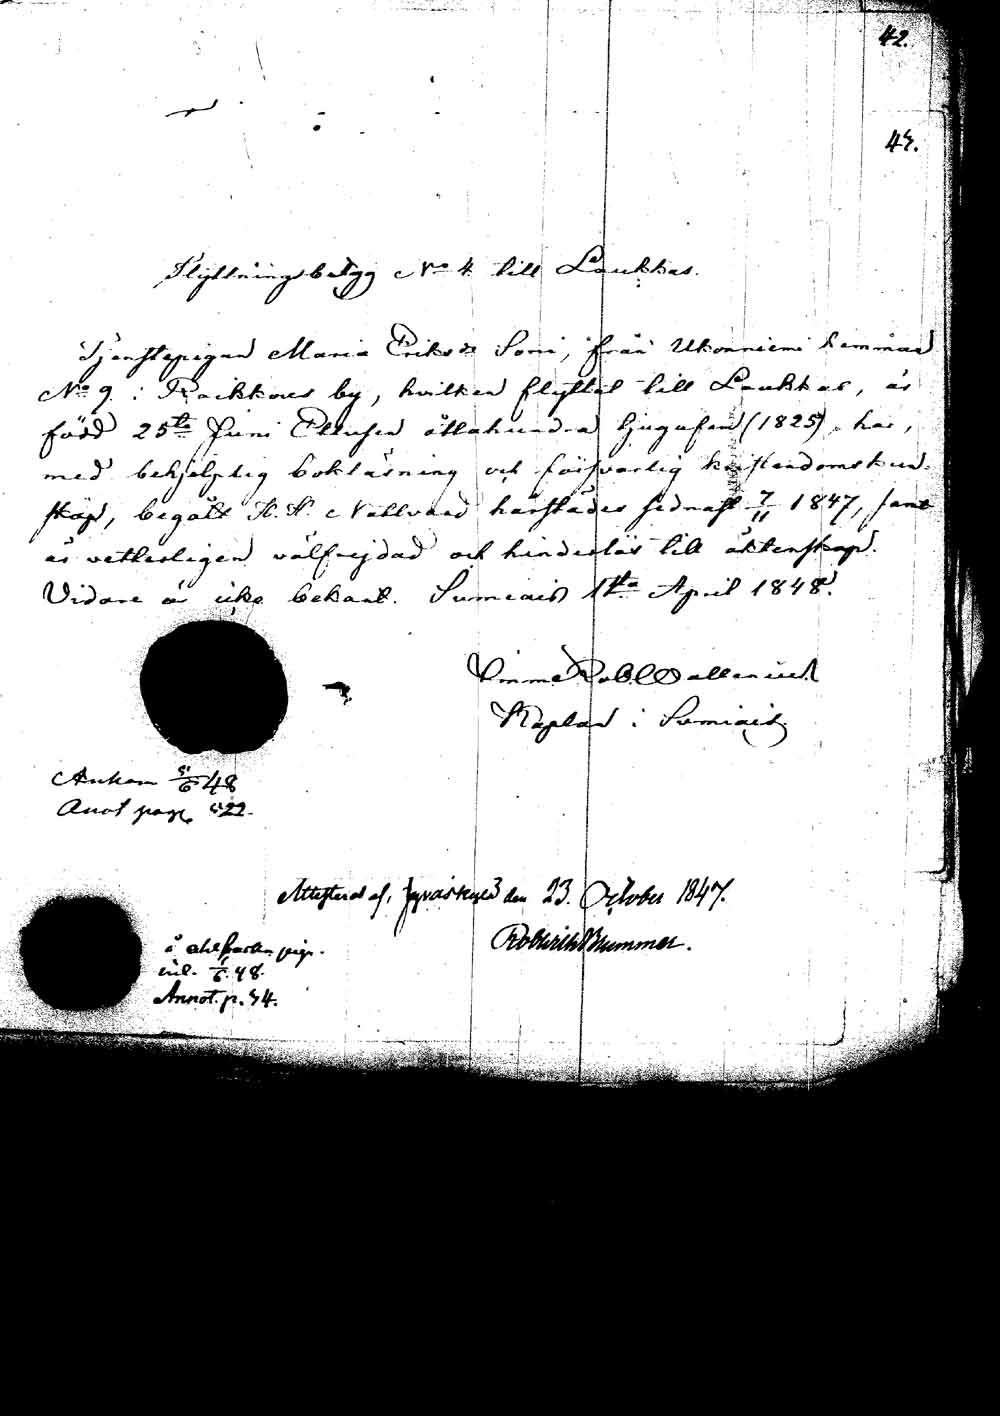 42.
47.
Flyttningsbetyg No 4 till Laukkas.
Tjenstepigan Maria Eriksdr Soni, från Ukonniemi hemman
No 9 i Raikkous by, hvilken flyttat till Laukkas, är
född 25te Juni Ettusen åttahundra tjugufem (1825), har,
med behjelplig bokläsning och försvarlig kristendomskun-
skap, begått H. H. Nattvard härstädes sednast 7/11 1847, samt
är vetterligen välfrejdad och hinderlös till äktenskap.
Vidare är icke bekant. Sumiais 1sta April 1848.
Kaplan i Sumiais
Ankom 5/6 48
Anot pag. 522.
Attesteras af, Jyväskylä den 23. October 1847.
Brummer.
Annot. p. 54.